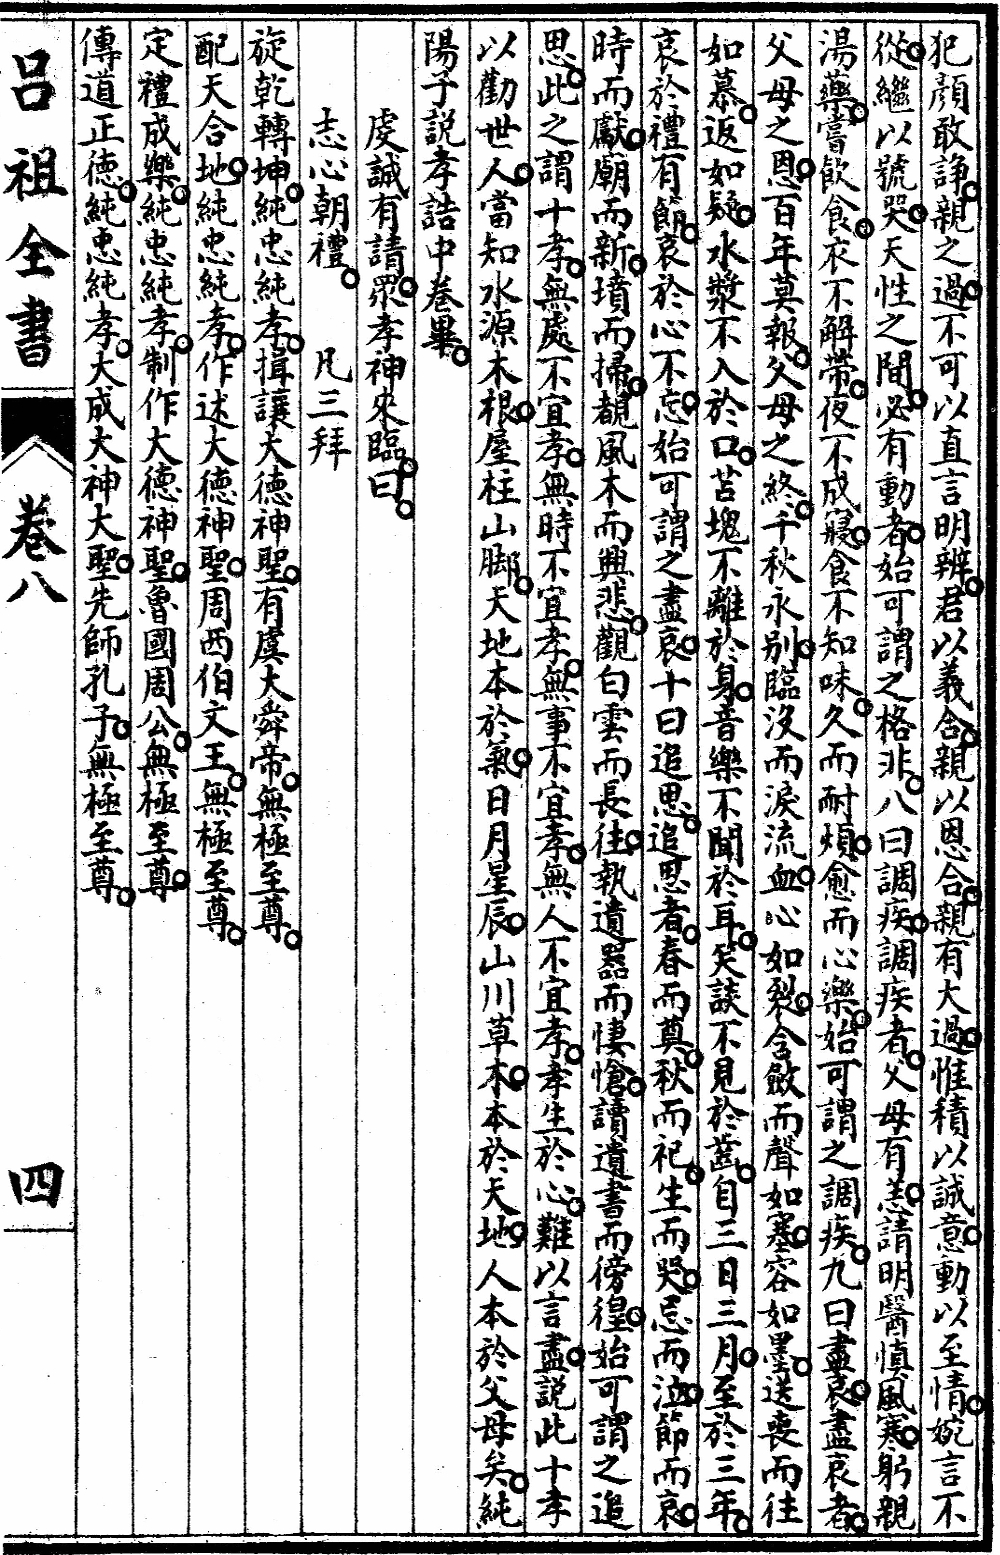 犯顏敢諍親之過不可以直言明辨君以義合親以恩合親有大過惟積以誠意動以至情婉言不
從繼以號哭天性之間必有動者始可謂之格非八曰調疾調疾者父母有恙請明醫慎風寒躬親
湯藥嘗飲食衣不解帶夜不成寢食不知味久而耐煩愈而心樂始可謂之調疾九曰盡哀盡哀者
父母之恩百年莫報父母之終千秋永別臨沒而淚流血心如裂含斂而聲如塞容如墨送喪而往
如慕返如疑水漿不入於口苫塊不離於身音樂不聞於耳笑談不見於齒自三日三月至於三年
哀於禮有節哀於心不忘始可謂之盡哀十曰追思追思者春而奠秋而祀生而哭忌而泣節而哀
時而獻廟而新墳而掃覩風木而興悲觀白雲而長往執遺器而悽愴讀遺書而徬徨始可謂之追
思此之謂十孝無處不宜孝無時不宜孝無事不宜孝無人不宜孝孝生於心難以言盡說此十孝
以勸世人當知水源木根屋柱山腳天地本於氣日月星辰山川草木本於天地人本於父母矣純
陽子說孝誥中卷畢
虔誠有請眾孝神來臨曰
志心朝禮 凡三拜
旋乾轉坤純忠純孝揖讓大德神聖有虞大舜帝無極至尊
配天合地純忠純孝作述大德神聖周西伯文王無極至尊
定禮成樂純忠純孝制作大德神聖魯國周公無極至尊
傳道正德純忠純孝大成大神大聖先師孔子無極至尊
呂祖全書
卷八
四